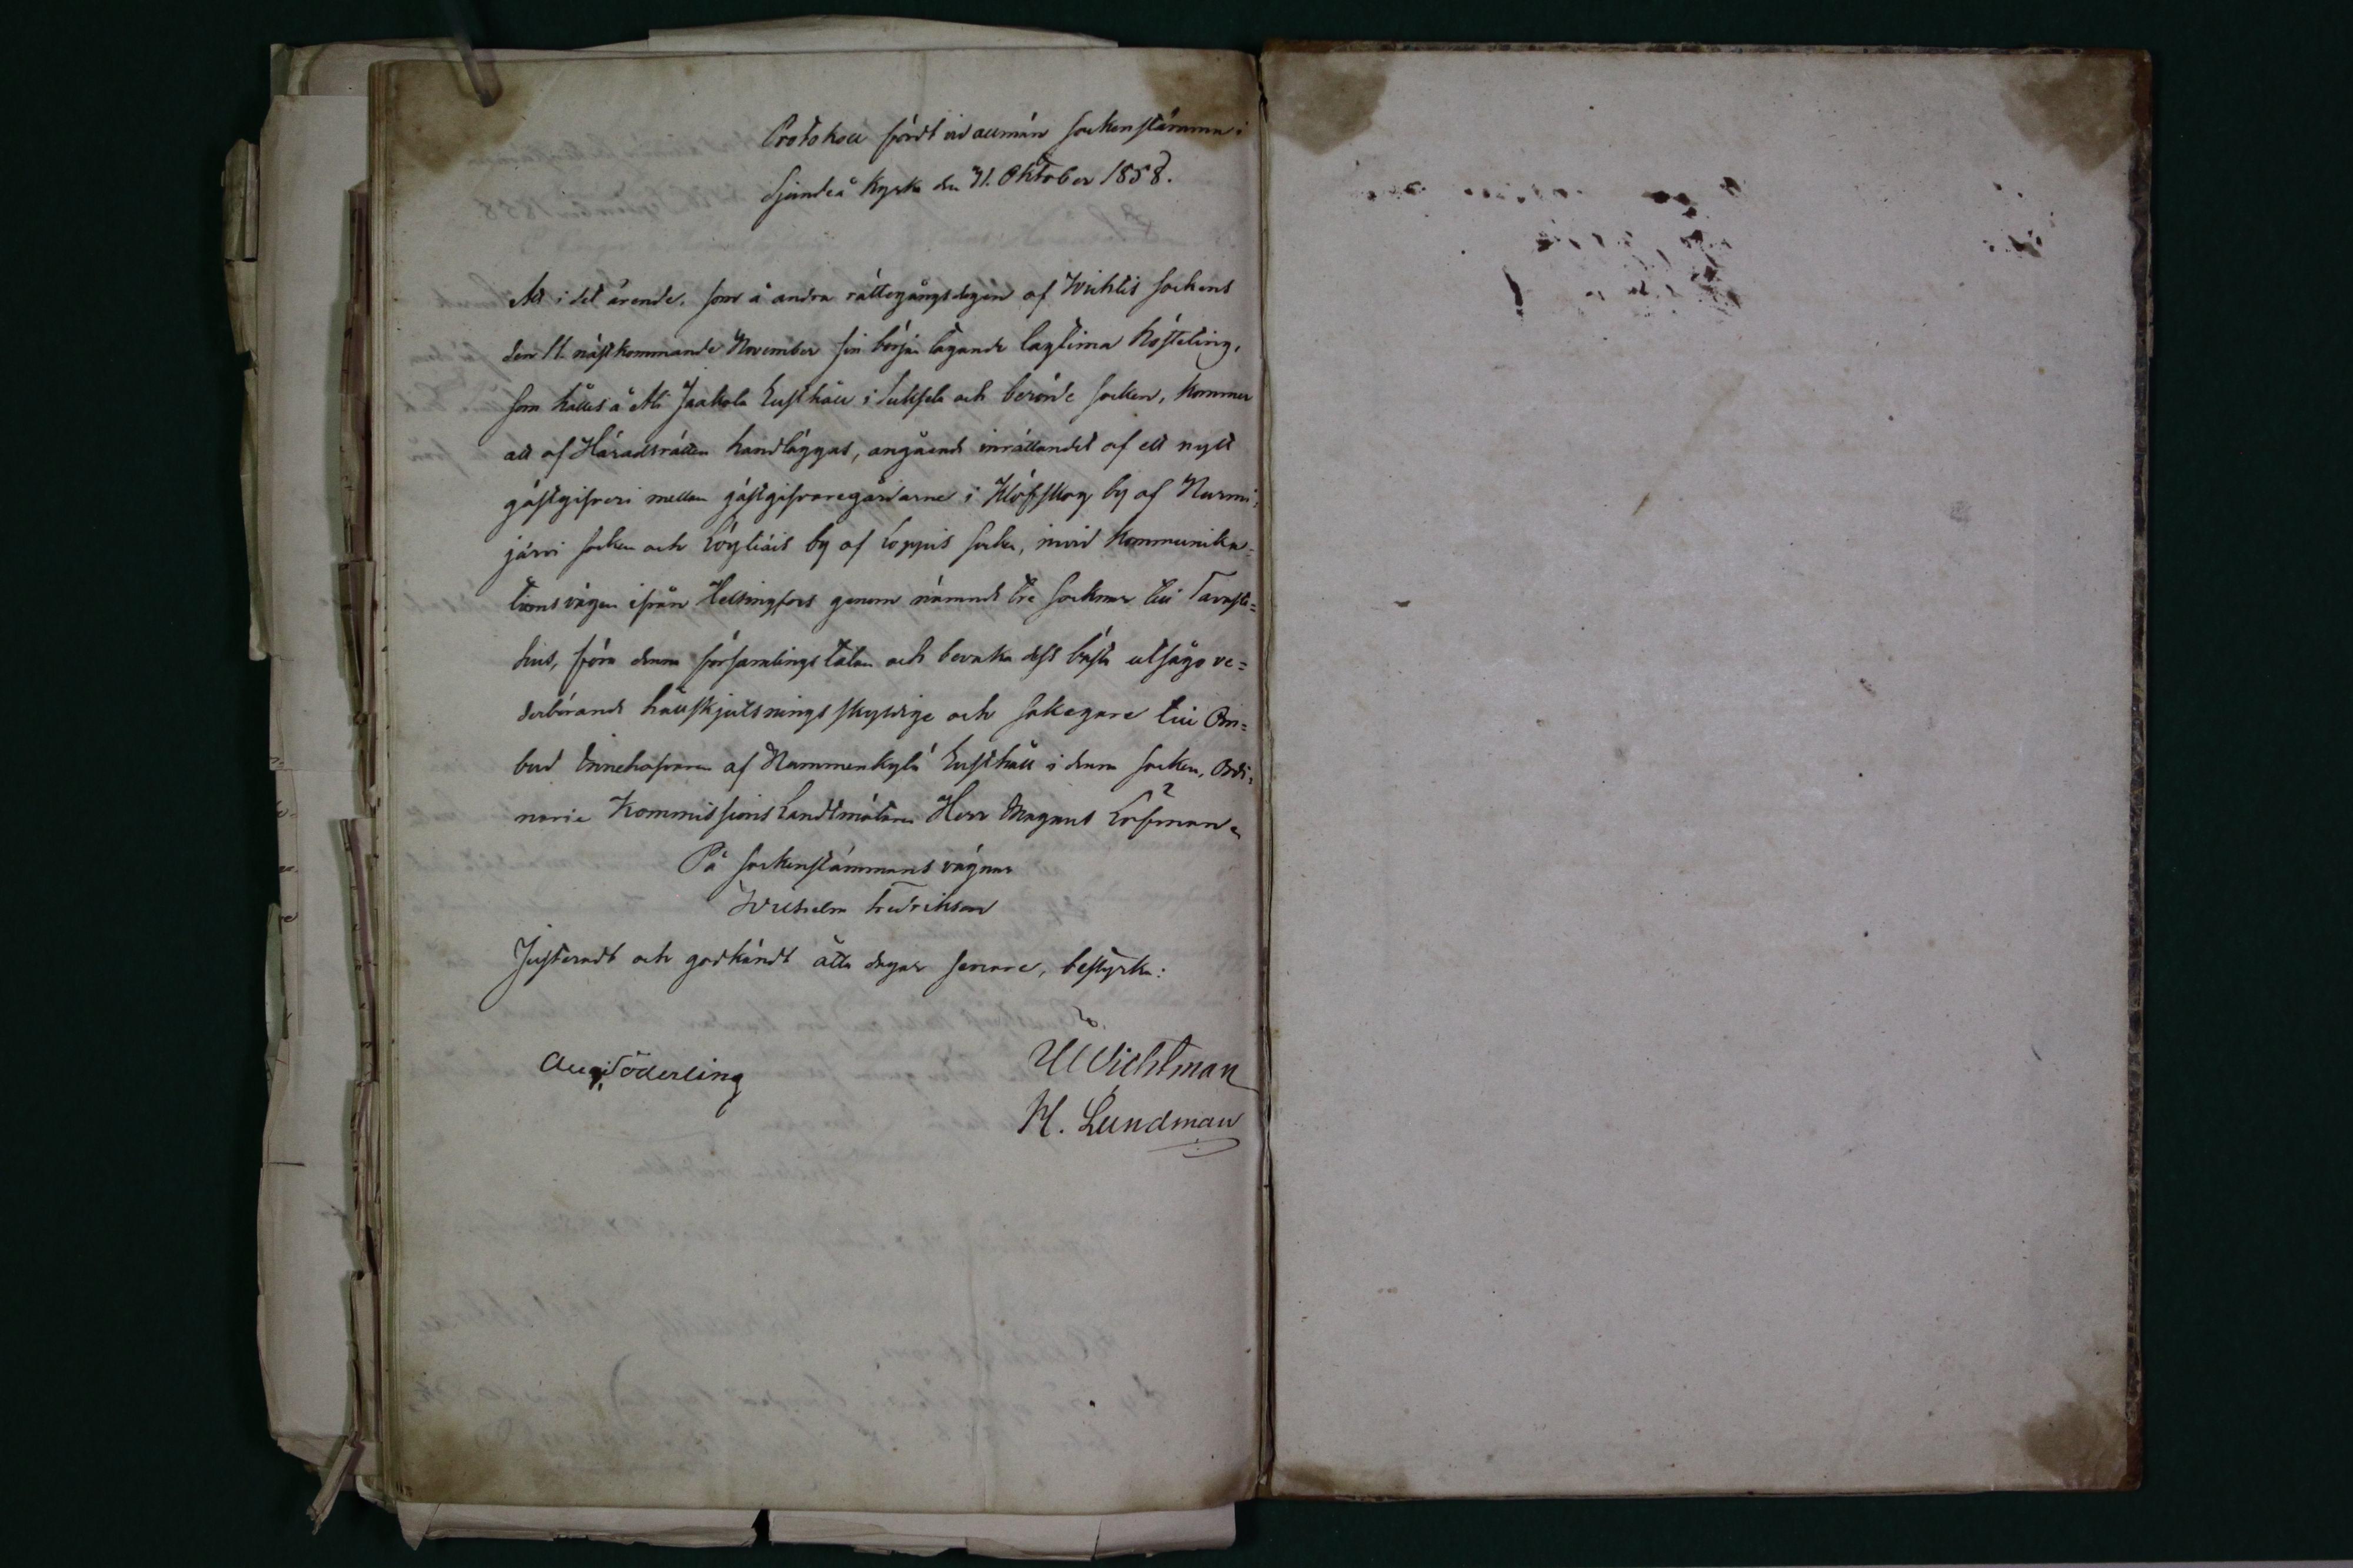 Protokoll fördt vid allmän sockenstämma i
Sjundeå kyrka den 31. Oktober 1858.
Att i det ärende, som å andra rättegångsdagen af Wichtis sockens
den 11 nästkommande November sin början tagande lagtima Hösteting,
som hålles å Ali Jaakola Rusthåll i Suksela och berörde socken, kommer
att af Häradsrätten handläggas, angående inrättandet af ett nytt
gästgifveri mellan gästgifvaregårdarne i Klöfskog by af Nurmi-
järvi socken och Löyliäis by af Loppis socken, invid Kommunika-
tionsvägen ifrån Helsingfors genom nämnde tre socknar till Tavaste-
hus, föra denna församlings talan och bevaka dess bästa utsågo ve-
derbörande hållskjutsningsskyldige och sakegare till Om-
bud Innehafvaren af Nummenkylä Rusthåll i denna socken, Ordi-
narie Kommissions Landtmätaren Herr Magnus Löfman.
På sockenstämmans vägnar
Wilhelm Fredrikson
Justeradt och godkändt åtta dagar senare, bestyrka:
Aug. Söderling
Wichtman
H. Lundman